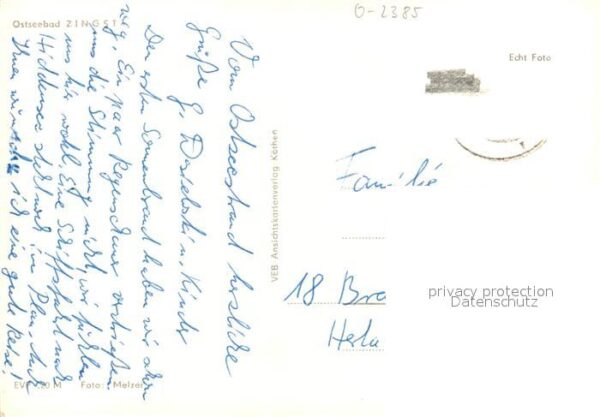 O-2385
Ostseebad ZINGST
Echt Foto
Vom Ostseestrand herzliche
Grüße G. & Kinder
Den ersten Sonnenbrand haben wir schon
weg. Ein paar Regenschauer
uns die Stimmung nicht, wir fühlen
uns hier wohl. Eine Schiffsfahrt nach
Hiddensee steht noch im Plan. Auch
Ihnen wünsche ich eine gute Reise!
VEB Ansichtskartenverlag Köthen
Familie
18 Bra
privacy protection
Datenschutz
EVP -,20 M Foto: Melzer